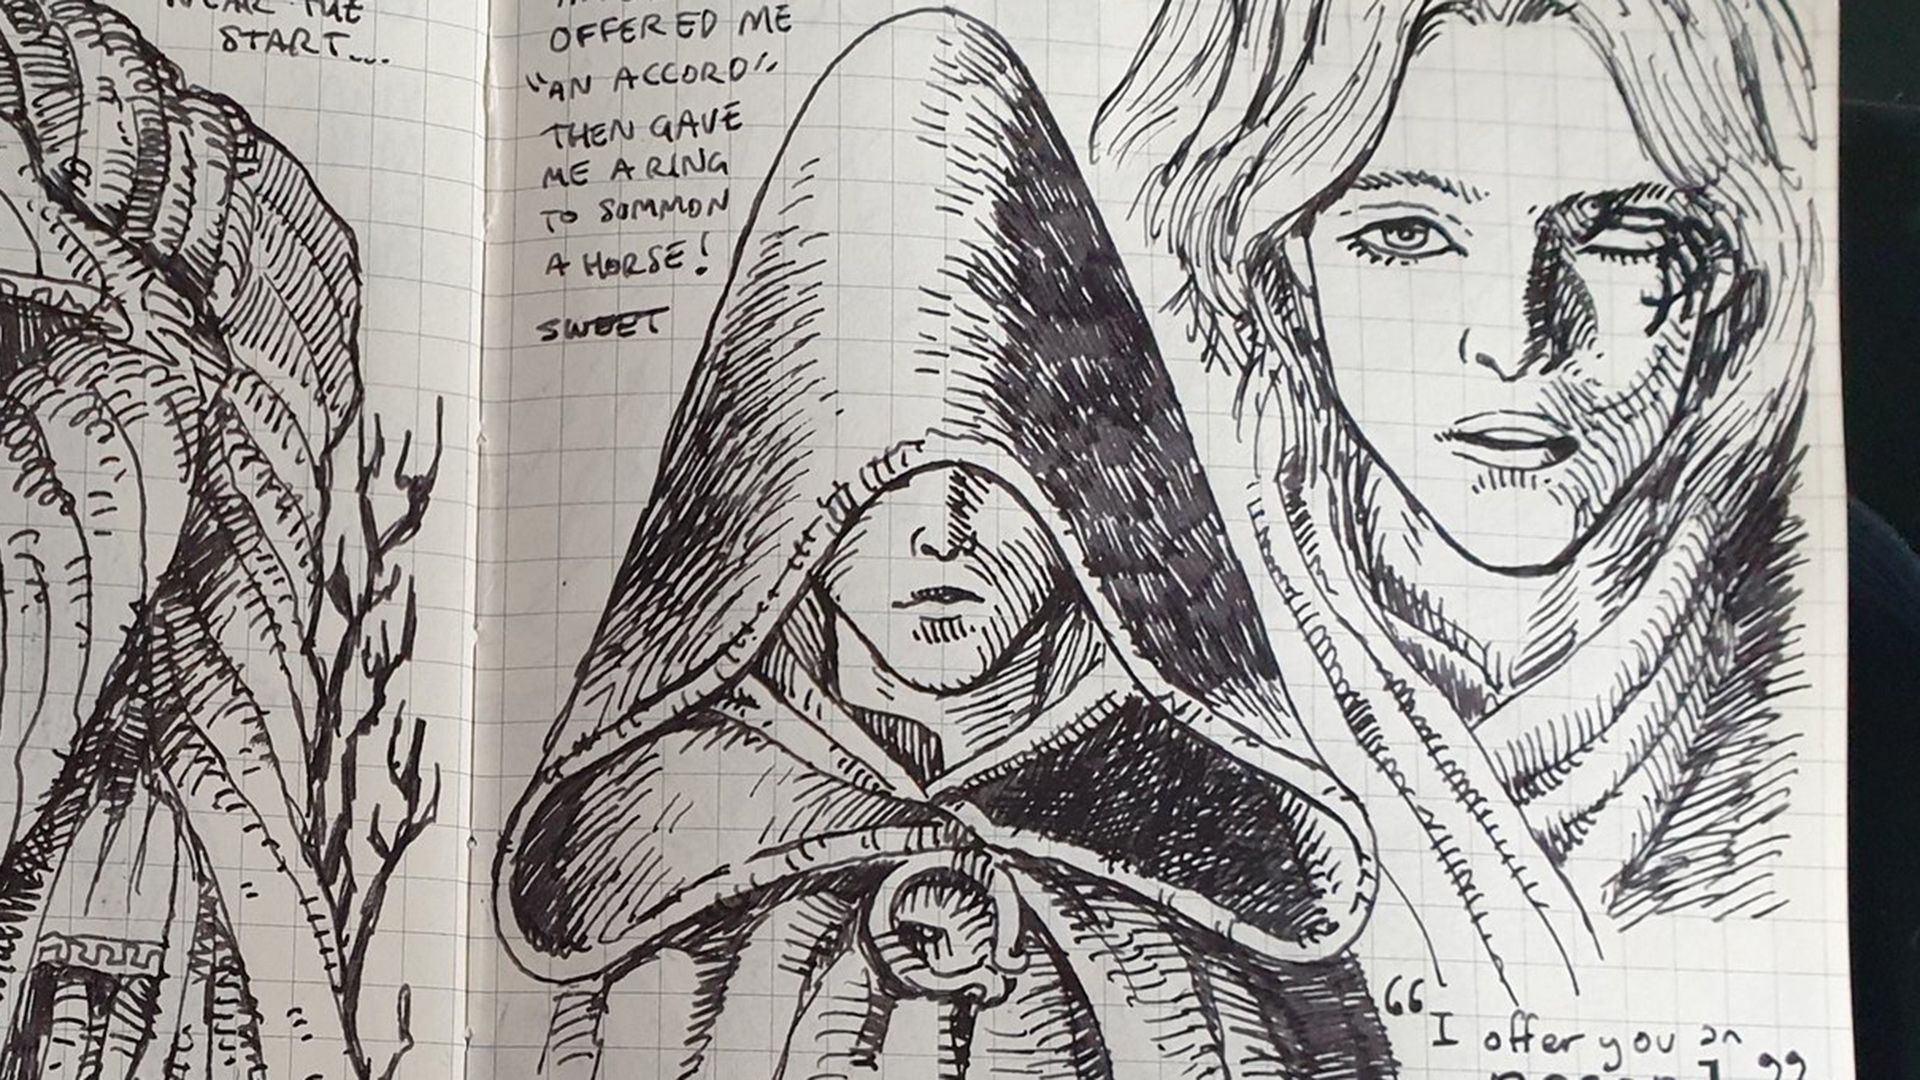 NEAR THE
START...
OFFERED ME
"AN ACCORD",
THEN GAVE
ME A RING
TO SUMMON
A HORSE!
SWEET
"I offer you an